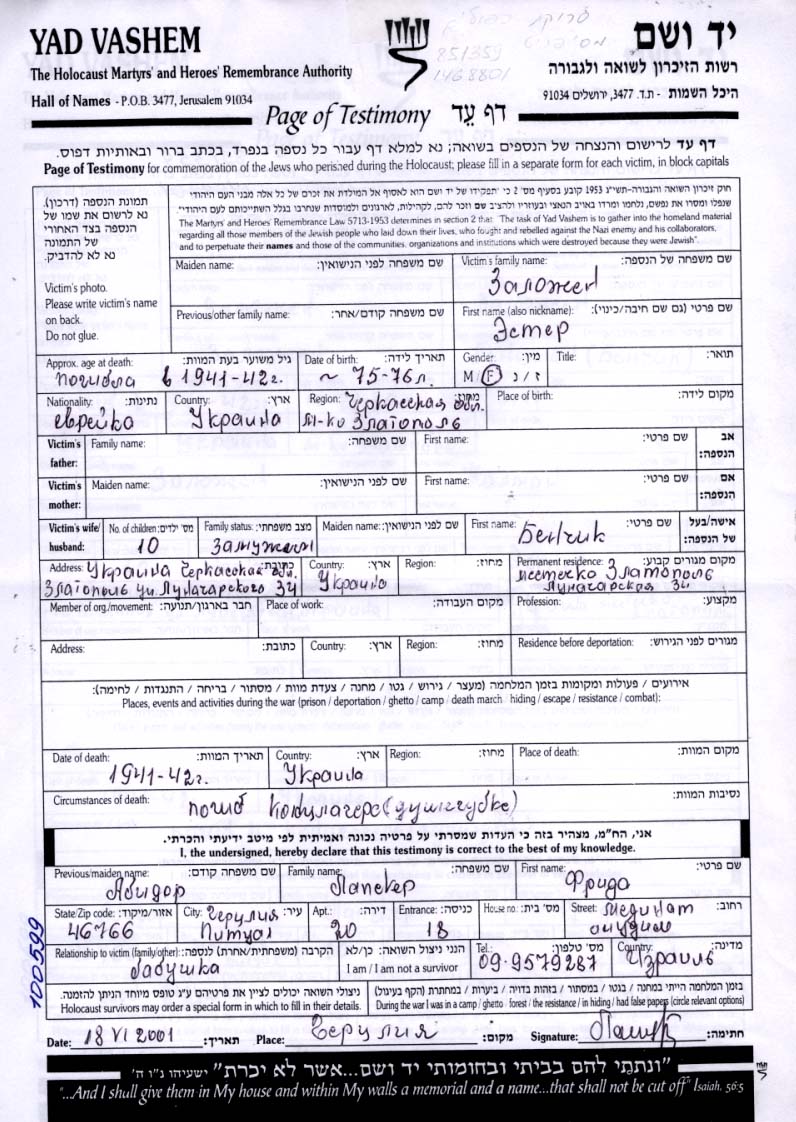 YAD VASHEM
The Holocaust Martyrs' and Heroes' Remembrance Authority
Hall of Names - P.O.B. 3477, Jerusalem 91034
851359
1468801
יד ושם
רשות הזיכרון לשואה ולגבורה
היכל השמות - ת.ד. 3477, ירושלים 91034
Page of Testimony דף עֵד
דף עד לרישום והנצחה של הנספים בשואה; נא למלא דף עבור כל נספה בנפרד, בכתב ברור ובאותיות דפוס.
Page of Testimony for commemoration of the Jews who perished during the Holocaust; please fill in a separate form for each victim, in block capitals
תמונת הנספה (דרכון).
נא לרשום את שמו של
הנספה בצד האחורי
של התמונה
נא לא להדביק.
Victim's photo.
Please write victim's name
on back.
Do not glue.
חוק זיכרון השואה והגבורה-תשי"ג 1953 קובע בסעיף מס' 2 כי "תפקידו של יד ושם הוא לאסוף אל המולדת את זכרם של כל אלה מבני העם היהודי
שנפלו ומסרו את נפשם, נלחמו ומרדו באויב הנאצי ובעוזריו ולהציב שם וזכר להם, לקהילות, לארגונים ולמוסדות שנחרבו בגלל השתייכותם לעם היהודי".
The Martyrs' and Heroes' Remembrance Law 5713-1953 determines in section 2 that: "The task of Yad Vashem is to gather into the homeland material
regarding all those members of the Jewish people who laid down their lives, who fought and rebelled against the Nazi enemy and his collaborators,
and to perpetuate their names and those of the communities, organizations and institutions which were destroyed because they were Jewish".
Maiden name: שם משפחה לפני הנישואין: Victim's family name: שם משפחה של הנספה:
Previous/other family name: שם משפחה קודם/אחר: First name (also nickname): שם פרטי (גם שם חיבה/כינוי):
Эстер
Approx. age at death: גיל משוער בעת המוות: Date of birth: תאריך לידה: Gender: מין: Title: תואר:
погибла в 1941-42г. ~ 75-76 л. M F ז / נ
Nationality: נתינות: Country: ארץ: Region: מחוז: Place of birth: מקום לידה:
еврейка Украина Черкасская обл.
м-ко Златополь
Victim's father: Family name: שם משפחה: First name: שם פרטי: אב הנספה:
Victim's mother: Maiden name: שם לפני הנישואין: First name: שם פרטי: אם הנספה:
Victim's wife/ husband: No. of children: מס' ילדים: Family status: מצב משפחתי: Maiden name: שם לפני הנישואין: First name: שם פרטי: אישה/בעל של הנספה:
10 замужем Бенчик
Address: כתובת: Country: ארץ: Region: מחוז: Permanent residence: מקום מגורים קבוע:
Украина Черкасская обл. Украина местечко Златополь
Златополь ул. Луначарского 34 Луначарская 34
Member of org./movement: חבר בארגון/תנועה: Place of work: מקום העבודה: Profession: מקצוע:
Address: כתובת: Country: ארץ: Region: מחוז: Residence before deportation: מגורים לפני הגירוש:
אירועים / פעולות ומקומות בזמן המלחמה (מעצר / גירוש / גטו / מחנה / צעדת מוות / מסתור / בריחה / התנגדות / לחימה):
Places, events and activities during the war (prison / deportation / ghetto / camp / death march / hiding / escape / resistance / combat):
Date of death: תאריך המוות: Country: ארץ: Region: מחוז: Place of death: מקום המוות:
1941-42г. Украина
Circumstances of death: נסיבות המוות:
погиб концлагере (душегубке)
אני, הח"מ, מצהיר בזה כי העדות שמסרתי על פרטיה נכונה ואמיתית לפי מיטב ידיעתי והכרתי.
I, the undersigned, hereby declare that this testimony is correct to the best of my knowledge.
Previous/maiden name: שם משפחה קודם: Family name: שם משפחה: First name: שם פרטי:
Абидор Ланскер Фрида
State/Zip code: אזור/מיקוד: City: עיר: Apt.: דירה: Entrance: כניסה: House no: מס' בית: Street: רחוב:
46766 Герцлия Питуах 20 18
Relationship to victim (family/other): הקרבה (משפחתית/אחרת) לנספה: הנני ניצול השואה: כן/לא Tel.: מס' טלפון: Country: מדינה:
бабушка I am / I am not a survivor 09-9579287 Израиль
ניצולי השואה יכולים לציין את פרטיהם ע"ג טופס מיוחד הניתן להזמנה. בזמן המלחמה הייתי במחנה / בגטו / במסתור / בזהות בדויה / ביערות / במחתרת (הקף בעיגול)
Holocaust survivors may order a special form in which to fill in their details. During the war I was in a camp / ghetto / forest / the resistance / in hiding / had false papers (circle relevant options)
Date: 18 VI 2001 תאריך: Place: Герцлия מקום: Signature: חתימה:
100599
"ונתתי להם בביתי ובחומותי יד ושם...אשר לא יכרת" ישעיהו נ"ו ה'
"...And I shall give them in My house and within My walls a memorial and a name...that shall not be cut off" Isaiah. 56:5